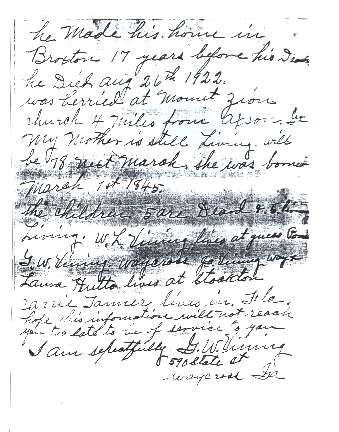 he Made his home in
Broxton 17 years before his Death
he Died aug 26th 1922.
was berried at Mount Zion
church 4 miles from Axson. Ga
My Mother is still Living will
be 78 next March. she was borned
March 1st 1845.
the children 5 are Dead & 6
Living. W. L. Vining lives at
G. W. Vining waycross
Laura Hutto lives at Stockton
Tanner lives in. Fla.
hope this infomation will not reach
you too late to be of service to you
I am respectfully G. W. Vining
590 State st
waycross Ga